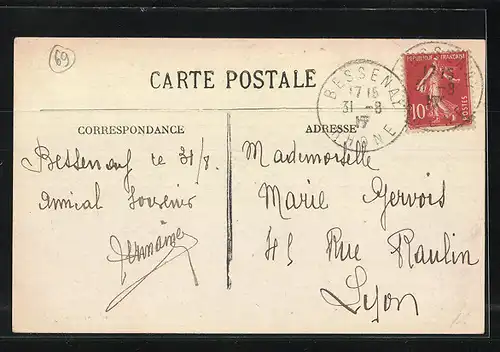 69
CARTE POSTALE
CORRESPONDANCE
Bessenay le 31/8.
Amical Souvenir
Germaine
ADRESSE
Mademoiselle
Marie Gervois
45 Rue Raulin
Lyon
BESSENAY
17 15
31 -8
17
RHONE
REPUBLIQUE FRANÇAISE
10
POSTES